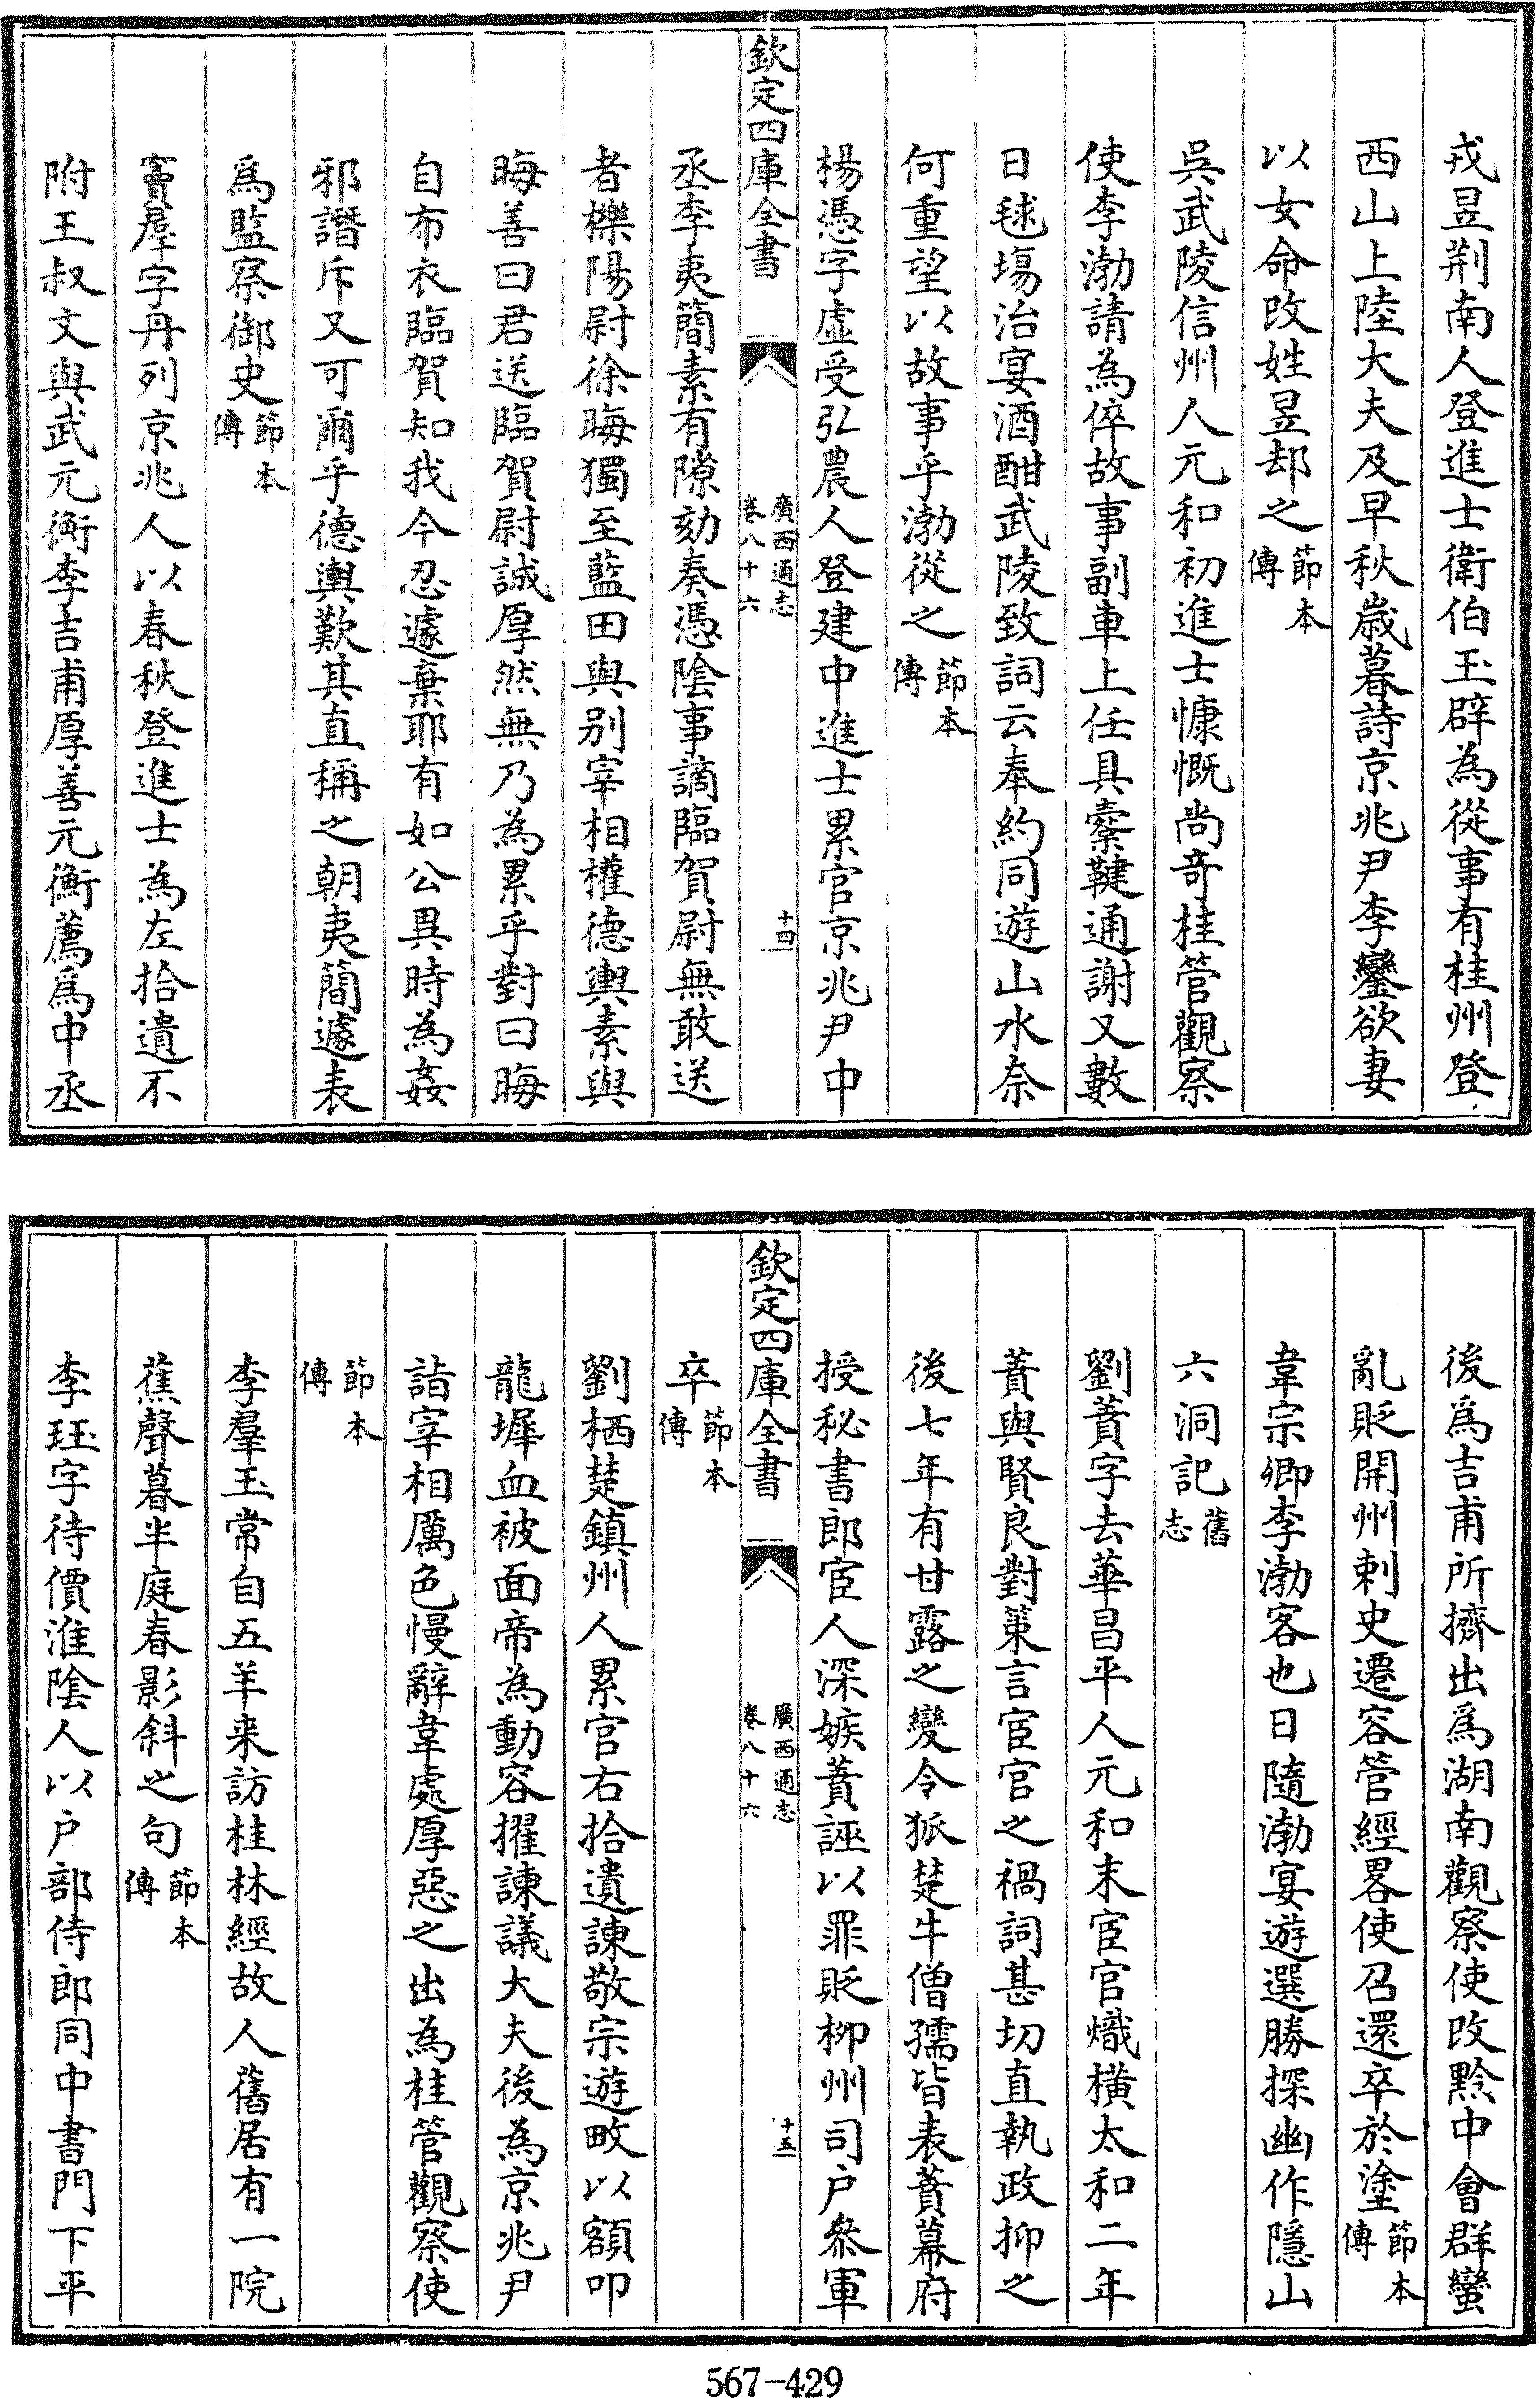 戎昱荆南人登進士衛伯玉辟為從事有桂州登
西山上陸大夫及早秋歲暮詩京兆尹李鑾欲妻
以女命改姓昱却之節本傳
吳武陵信州人元和初進士慷慨尚奇桂管觀察
使李渤請為倅故事副車上任具櫜鞬通謝又數
日毬場治宴酒酣武陵致詞云奉約同遊山水奈
何重望以故事乎渤從之節本傳
楊憑字虛受弘農人登建中進士累官京兆尹中
欽定四庫全書
廣西通志
卷八十六
十四
丞李夷簡素有隙劾奏憑陰事謫臨賀尉無敢送
者櫟陽尉徐晦獨至藍田與别宰相權德輿素與
晦善曰君送臨賀尉誠厚然無乃為累乎對曰晦
自布衣臨賀知我今忍遽棄耶有如公異時為姦
邪譖斥又可爾乎德輿歎其直稱之朝夷簡遽表
爲監察御史節本傳
竇羣字丹列京兆人以春秋登進士為左拾遺不
附王叔文與武元衡李吉甫厚善元衡薦爲中丞
後爲吉甫所擠出爲湖南觀察使改黔中會群蠻
亂貶開州刺史遷容管經畧使召還卒於塗節本傳
韋宗卿李渤客也日隨渤宴遊選勝探幽作隱山
六洞記舊志
劉蕡字去華昌平人元和末宦官熾橫太和二年
蕡與賢良對策言宦官之禍詞甚切直執政抑之
後七年有甘露之變令狐楚牛僧孺皆表蕡幕府
授秘書郎宦人深嫉蕡誣以罪貶柳州司户叅軍
欽定四庫全書
廣西通志
卷八十六
十五
卒節本傳
劉栖楚鎮州人累官右拾遺諫敬宗遊畋以額叩
龍墀血被面帝為動容擢諫議大夫後為京兆尹
詣宰相厲色慢辭韋處厚惡之出為桂管觀察使
節本傳
李羣玉常自五羊来訪桂林經故人舊居有一院
蕉聲暮半庭春影斜之句節本傳
李珏字待價淮陰人以户部侍郎同中書門下平
567-429